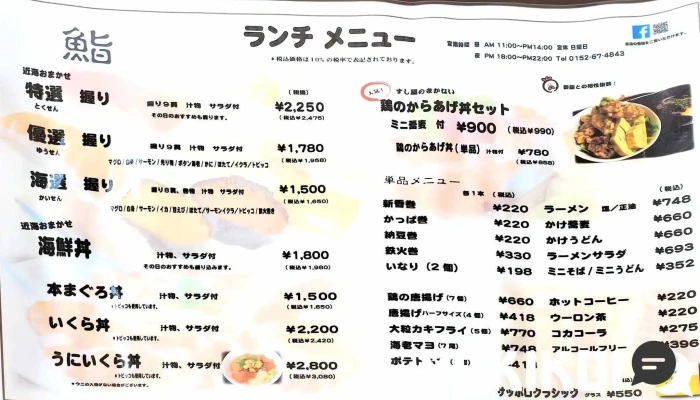 鮨
ランチ メニュー
*税込価格は10%の税率で表記されております。
営業時間 昼 AM 11:00〜PM14:00 定休 日曜日
夜 PM 18:00〜PM22:00 Tel 0152-67-4843
近海おまかせ
特選 握り
とくせん
握り9貫 汁物 サラダ付
その日のおすすめも握ります。
(税抜)
¥2,250
(税込¥2,475)
優選 握り
ゆうせん
握り9貫 汁物 サラダ付
¥1,780
(税込¥1,958)
海選 握り
かいせん
握り8貫、巻物 汁物 サラダ付
¥1,500
(税込¥1,650)
近海おまかせ
海鮮丼
汁物、サラダ付
その日のおすすめも盛り込みます。
¥1,800
(税込¥1,980)
本まぐろ丼
汁物、サラダ付
*トビッコを使用しています。
¥1,500
(税込¥1,650)
いくら丼
汁物、サラダ付
*トビッコを使用しています。
¥2,200
(税込¥2,420)
うにいくら丼
汁物、サラダ付
*トビッコを使用しています。
¥2,800
(税込¥3,080)
*ウニの入荷がない場合がございます。
人気!
すし屋のまかない
鶏のからあげ丼セット
ミニ蕎麦 付 ¥900 (税込¥990)
鶏のからあげ丼(単品) 汁物付 ¥780
(税込¥858)
蕎麦との相性抜群!
単品メニュー
各1本 (税込)
新香巻 ¥220
かっぱ巻 ¥220
納豆巻 ¥220
鉄火巻 ¥330
いなり(2個) ¥198
(税込)
ラーメン 塩/正油 ¥748
かけ蕎麦 ¥660
かけうどん ¥660
ラーメンサラダ ¥693
ミニそば/ミニうどん ¥352
鶏の唐揚げ(7個) ¥660
唐揚げハーフサイズ(4個) ¥418
大粒カキフライ(5個) ¥770
海老マヨ(7尾) ¥748
ポテト
ホットコーヒー ¥220
ウーロン茶 ¥220
コカコーラ ¥275
アルコールフリー ¥396
サッポロクラシック グラス ¥550